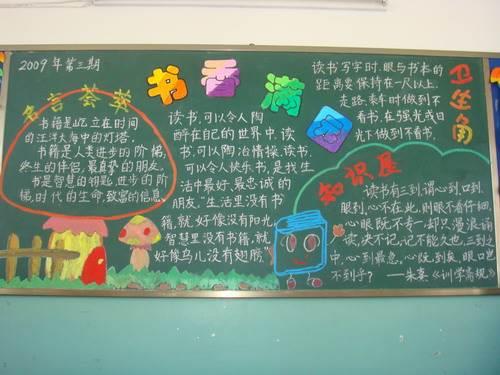 2009年第三期
书香满
名言荟萃
书籍是屹立在时间
的汪洋大海中的灯塔.
书籍是人类进步的阶梯,
终生的伴侣,最真挚的朋友.
书是智慧的钥匙,进步的阶
梯,时代的生命,致富的信息.
读书,可以令人陶
醉在自己的世界中.读
书,可以陶冶情操.读书,
可以令人快乐.书,是我生
活中最好、最忠诚的
朋友."生活里没有书
籍,就好像没有阳光,
智慧里没有书籍,就
好像鸟儿没有翅膀"
读书写字时,眼与书本的
距离要保持在一尺以上.
走路、乘车时做到不
看书,在强光或日
光下做到不看书.
卫生角
知识屋
读书有三到,谓心到,口到,
眼到.心不在此,则眼不看仔细,
心眼既不专一,却只漫浪诵
读,决不记,记不能久也.三到之
中,心到最急.心既到矣,眼口岂
不到乎?——朱熹《训学斋规》